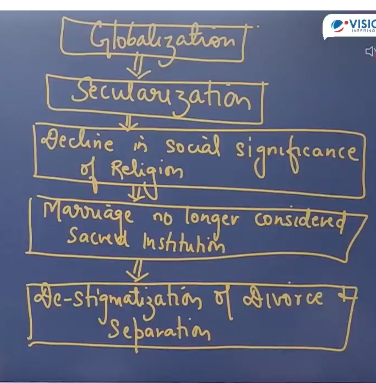 VISIO
Globalization
Secularization
Decline in social significance
of Religion
Marriage no longer considered
Sacred Institution
De-stigmatization of Divorce &
Separation